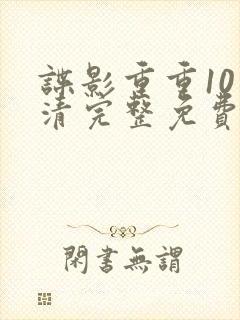 諜影重重10
清完整免費
閑書無謂